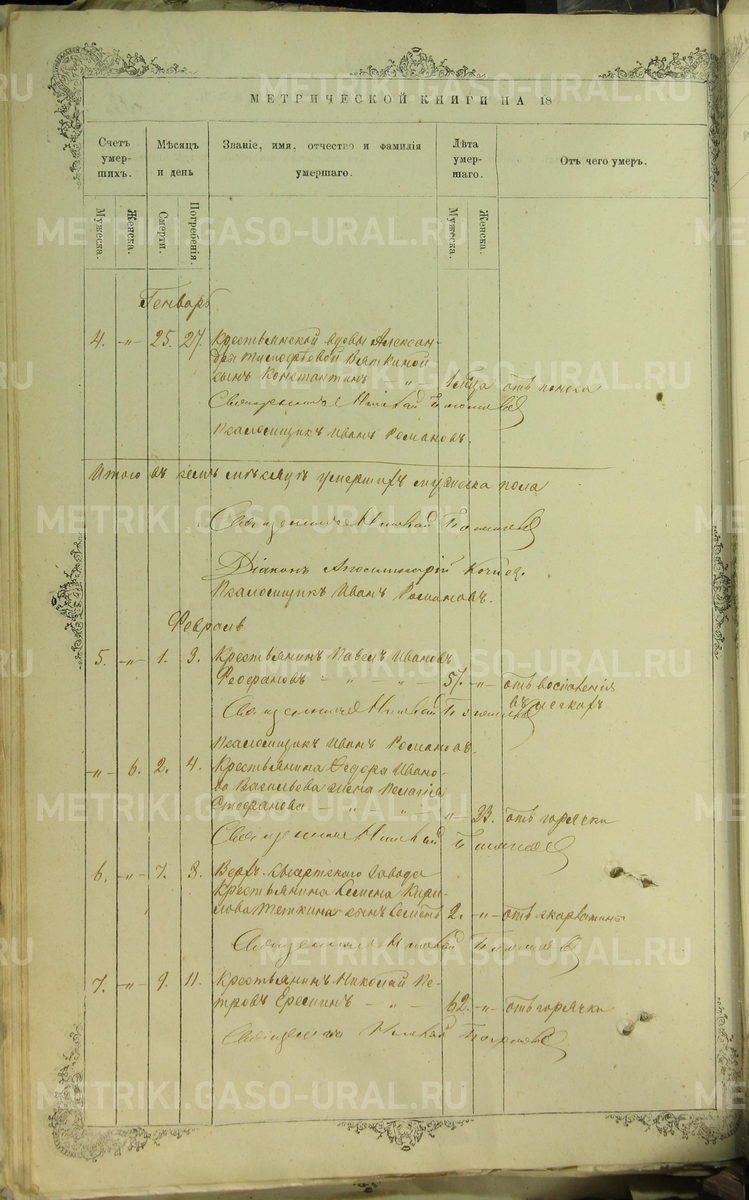 МЕТРИЧЕСКОЙ КНИГИ НА 18
Счетъ умер-шихъ.
Мѣсяцъ и день
Званіе, имя, отчество и фамилія умершаго.
Лѣта умер-шаго.
Отъ чего умеръ.
Мужеска.
Женска.
Смерти.
Погребенія.
Мужеска.
Женска.
Генварь
4. -„- 25. 27. Крестьянской вдовы Алексан-
дры Тимофеевой Вяткиной
сынъ Константинъ „ отъ поноса
Священникъ Николай
Псаломщикъ Иванъ Романовъ.
Итого въ семъ мѣсяцѣ умершихъ мужеска пола
Священникъ Николай
Діаконъ
Псаломщикъ Иванъ Романовъ.
Февраль
5. -„- 1. 3. Крестьянинъ Павелъ Ивановъ
57. -„- отъ воспаленія
въ легкихъ
Священникъ Николай
Псаломщикъ Иванъ Романовъ.
-„- 6. 2. 4. Крестьянина Федора Ивано-
ва Васильева жена Пелагія
Стефанова -„- 23. отъ горячки
Священникъ Николай
6. -„- 7. 8. Верх-Сысертского завода
крестьянина Семена Кири-
лова сынъ 2. -„- отъ скарлатины
Священникъ Николай
7. -„- 9. 11. Крестьянинъ Николай Пе-
тровъ 62. -„- отъ горячки
Священникъ Николай
METRIKI.GASO-URAL.RU